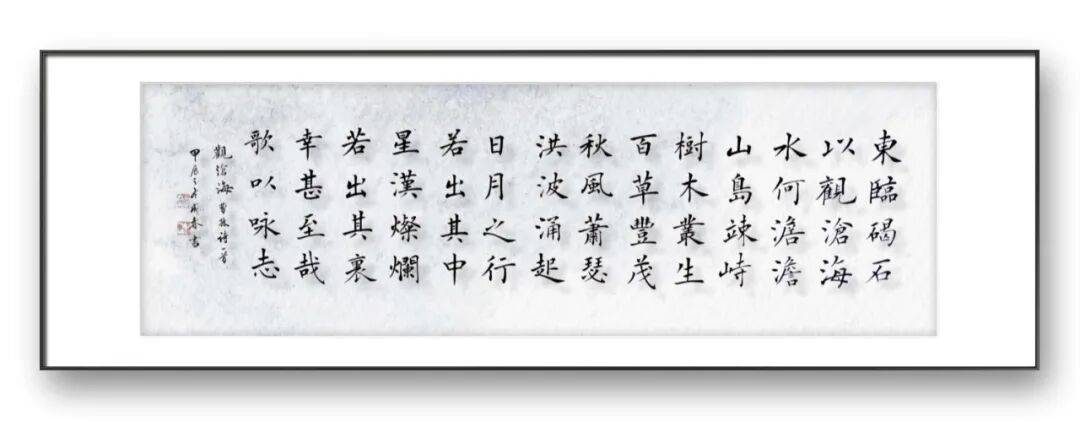 東臨碣石
以觀滄海
水何澹澹
山島竦峙
樹木叢生
百草豐茂
秋風蕭瑟
洪波涌起
日月之行
若出其中
星漢燦爛
若出其裏
幸甚至哉
歌以咏志
觀滄海 曹操詩一首
甲辰之年 春書